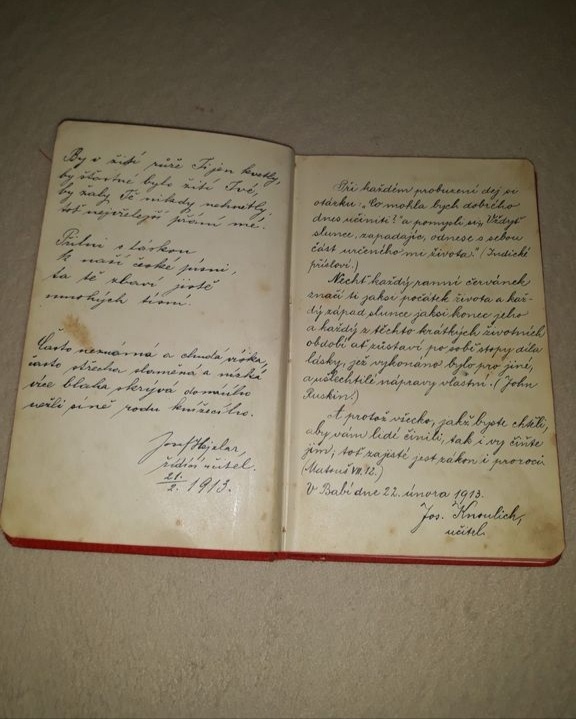 By v žití růže Ti jen kvetly,
by šťastné bylo žití Tvé,
by žaly Tě nikdy nehnětly,
toť nejvřelejší přání mé.
Přilni s láskou
k naší české písni,
ta tě zbaví jistě
mnohých tísní.
Často neznámá a chudá víska,
často střecha slaměná a nízká
více blaha skrývá domácího
nežli síně rodu knížecího.
Josef Hejcler,
řídící učitel.
21./2. 1913.
Při každém probuzení dej si
otázku: „Co mohla bych dobrého
dnes učiniti?" a pomysli si, „Vždyť
slunce, zapadajíc, odnese s sebou
část určeného mi života." (Indické
přísloví.)
Nechť každý ranní červánek
značí ti jaksi počátek života a kaž-
dý západ slunce jaksi konec jeho
a každý z těchto krátkých životních
období ať zůstaví po sobě stopy díla
lásky, jež vykonáno bylo pro jiné,
a ušlechtilé nápravy vlastní. (John
Ruskin.)
A protož všecko, jakž byste chtěli,
aby vám lidé činili, tak i vy čiňte
jim; toť zajisté jest zákon i proroci
(Matouš VII, 12.)
V Babí dne 22. února 1913.
Jos. Knoulich,
učitel.